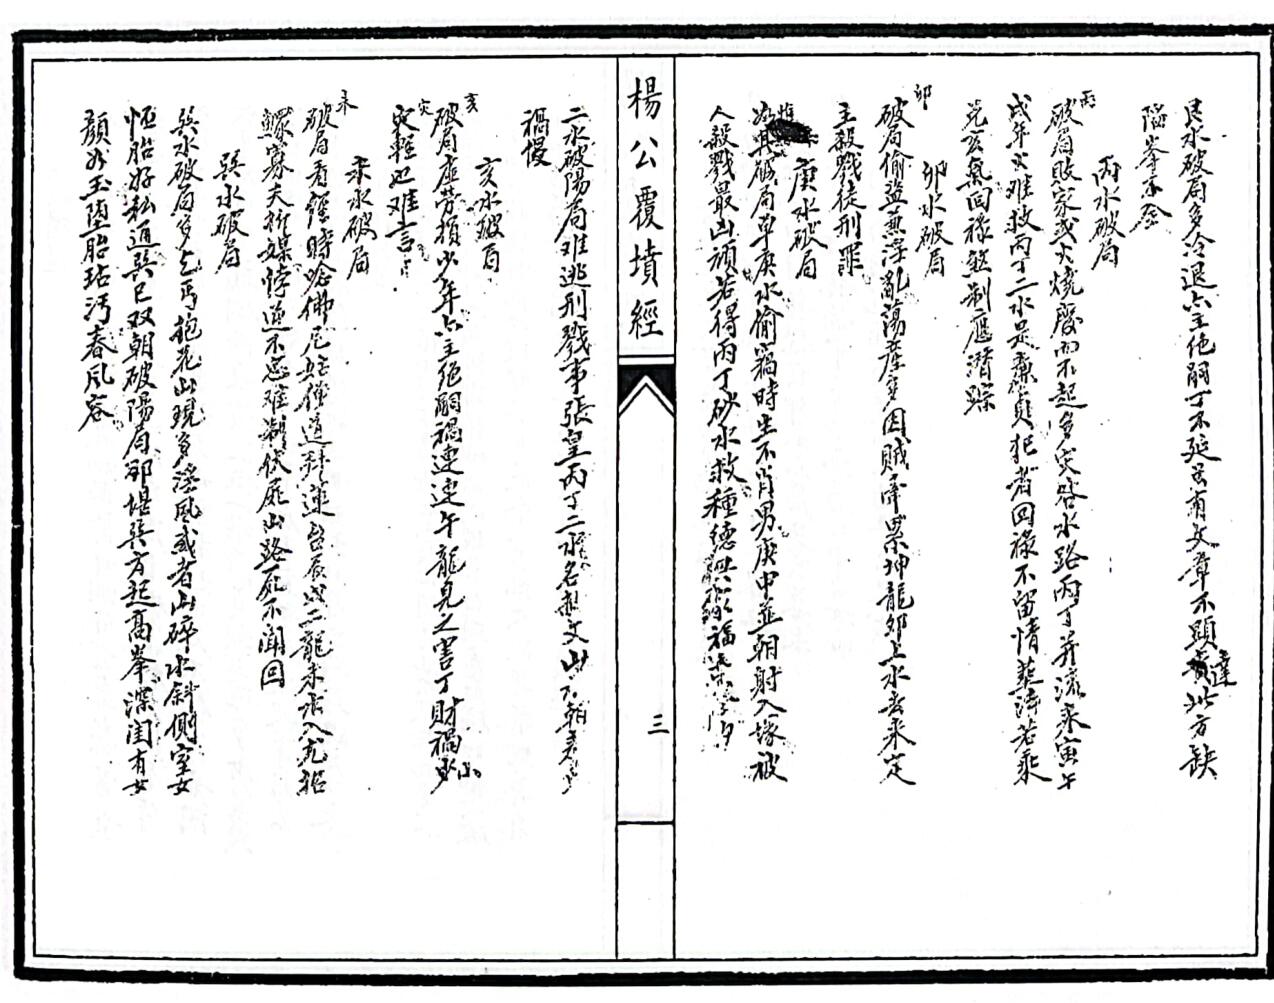 艮水破局多冷退亡主絕嗣丁不延若有文章不顯達此方缺
陷峯不全
丙水破局
丙破局敗家或火燒屢而不起多災咎水路丙丁并流來寅午
戌年火难救丙丁二水是禀貞犯者回祿不留情若乘
兄亥氣回祿煞制應潛踪
卯水破局
卯破局偷盜兼淫亂蕩產多因賊牽累坤龍卯上水去來定
主殺戮徒刑罪
庚水破局
惟其破局单庚水偷竊時生不肖男庚申並朝射入塚被
人殺戮最凶頑若得丙丁砂水救種德福
楊公覆墳經
三
二水破陽局难逃刑戮事張皇丙丁二水名赦文山朝
禍慢
亥水破局
亥破局虛劳損少年亡主絕嗣禍連連午龍見之害丁財禍小
災輕也难言
未水破局
未破局看經時唸佛尼姑僧道拜連台艮戌二龍未水入尤招
鰥寡夫折媒悖逆不忠难伏屍山路死不聞回
巽水破局
巽水破局多乞丐抱花山現多淫風或者山碎水斜側室女
怀胎好私通巽巳双朝破陽局那堪巽方起高峯深闺有女
顏如玉堕胎玷污春风容